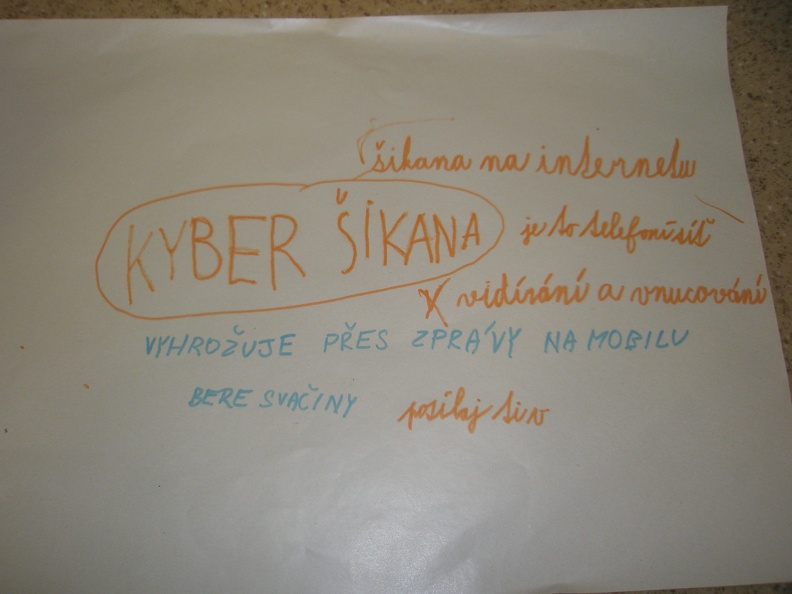 šikana na internetu
KYBER ŠIKANA
je to telefoní síť
vidírání a vnucování
VYHROŽUJE PŘES ZPRÁVY NA MOBILU
BERE SVAČINY
posílaj ti